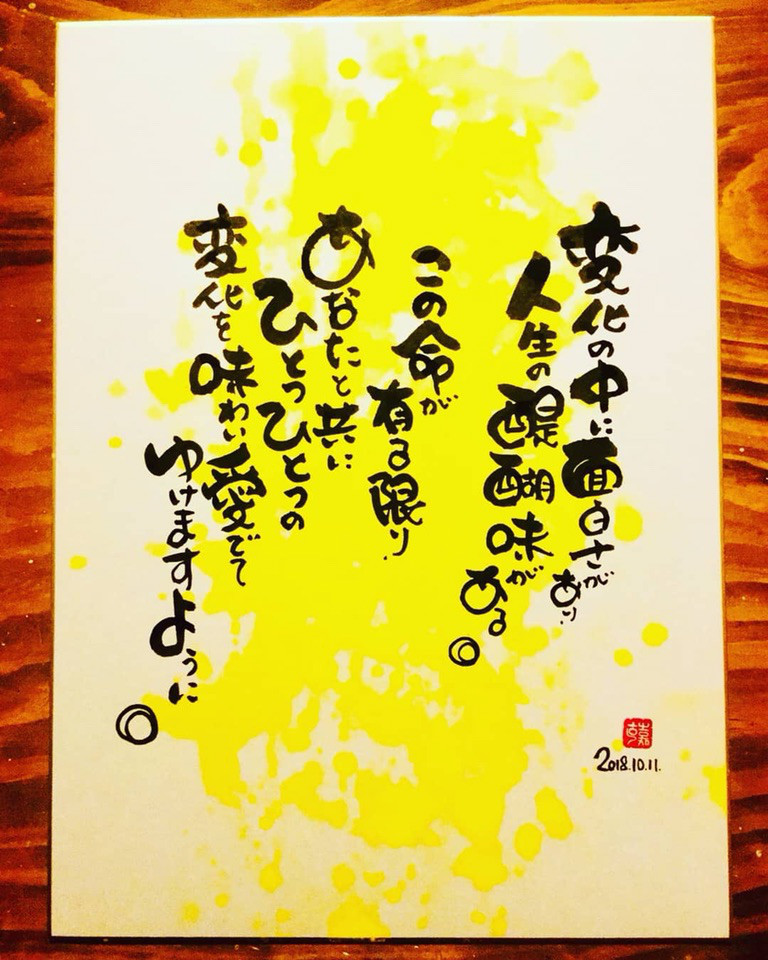 変化の中に面白さがあり
人生の醍醐味がある。
この命が
有る限り
あなたと共に
ひとつひとつの
変化を味わい愛でて
ゆけますように。
2018.10.11.